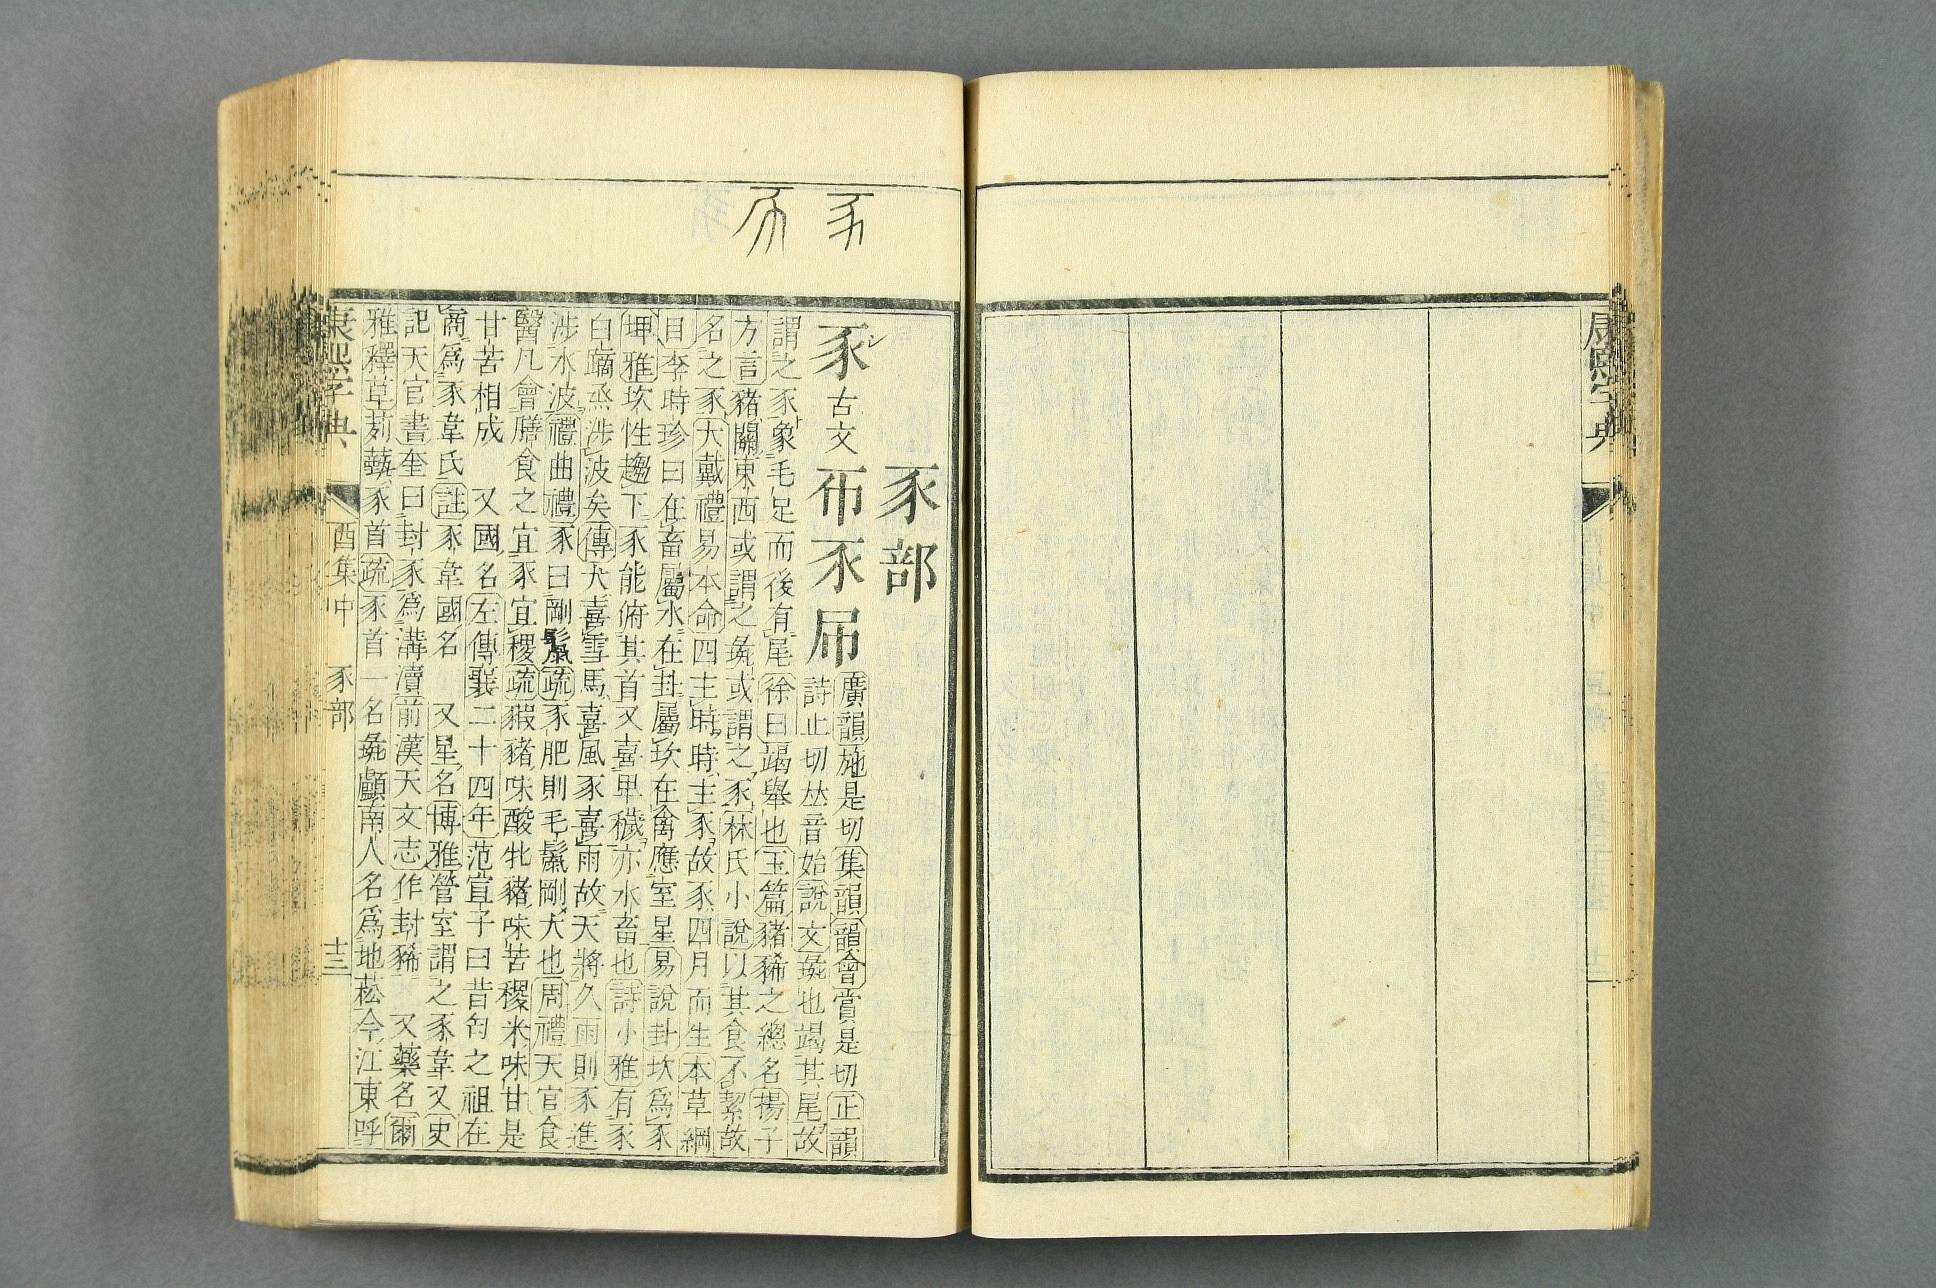 康熙字典
豕 豕
豕部
豕シ古文𢁓𣎆𠨕廣韻施是切集韻韻會賞是切正韻
詩止切𠀤音始說文彘也竭其尾故
謂之豕象毛足而後有尾徐曰竭舉也玉篇豬豨之總名揚子
方言豬關東西或謂之彘或謂之豕林氏小說以其食不絜故
名之豕大戴禮易本命四主時時主豕故豕四月而生本草綱
目李時珍曰在畜屬水在卦屬坎在禽應室星易說卦坎爲豕
埤雅坎性趨下豕能俯其首又喜卑穢亦水畜也詩小雅有豕
白蹢烝涉波矣傳犬喜雪馬喜風豕喜雨故天將久雨則豕進
涉水波禮曲禮豕曰剛鬣疏豕肥則毛鬣剛大也周禮天官食
醫凡會膳食之宜豕宜稷疏豭豬味酸牝豬味苦稷米味甘是
甘苦相成 又國名左傳襄二十四年范宣子曰昔匄之祖在
商爲豕韋氏註豕韋國名 又星名博雅營室謂之豕韋又史
記天官書奎曰封豕爲溝瀆前漢天文志作封豨 又藥名爾
雅釋草茢薽豕首疏豕首一名彘顱南人名爲地菘今江東呼
康熙字典 酉集中 豕部 十三